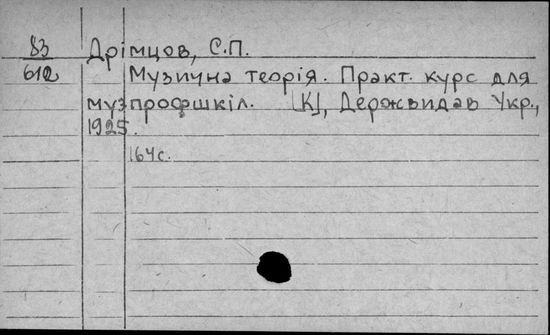 83 Дрімцов, С.П.
612 Музична теорія. Практ. курс для
музпрофшкіл. [К], Державидав Укр.,
1925.
164с.